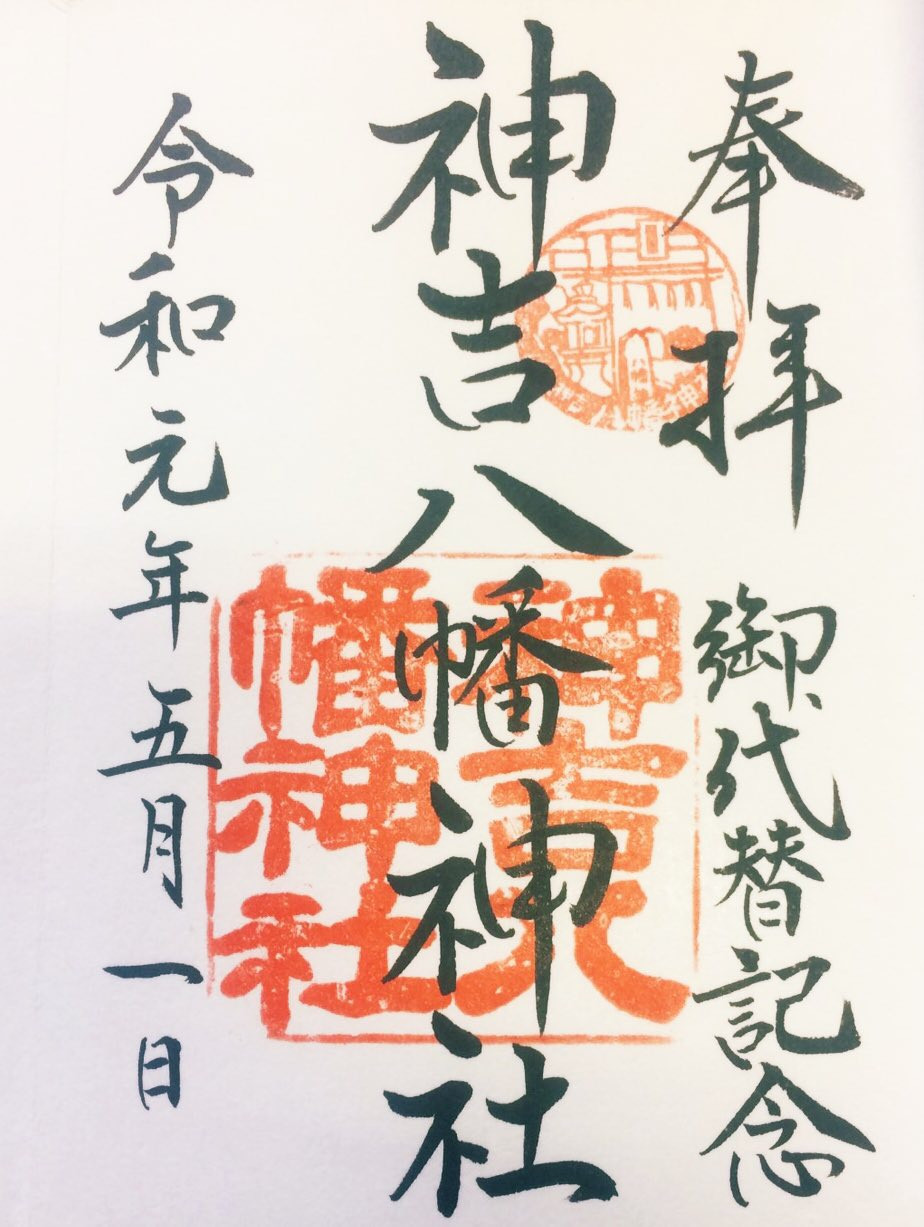 奉拝 御代替記念
神吉八幡神社
神吉八
幡神社
令和元年五月一日